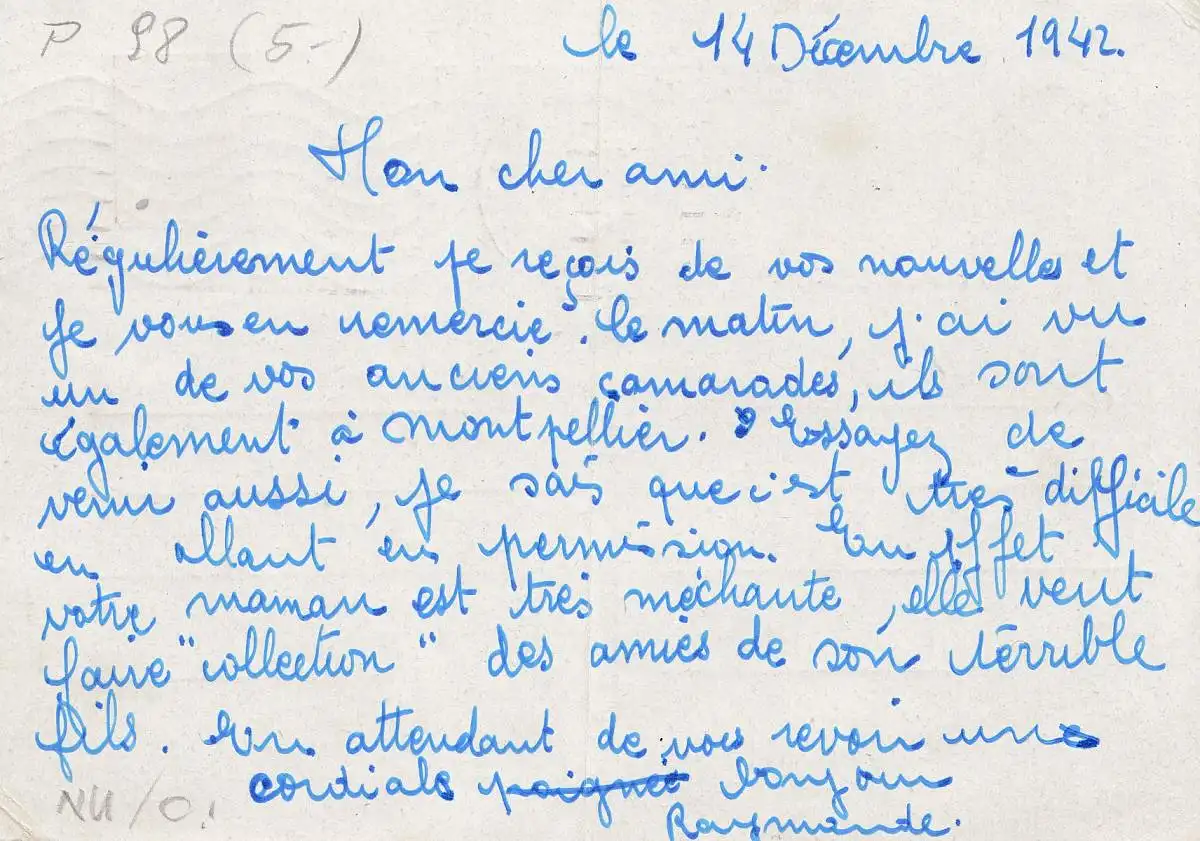 P 98 (5-)
le 14 Décembre 1942.
Mon cher ami.
Régulièrement je reçois de vos nouvelles et
je vous en remercie. Ce matin, j'ai vu
un de vos anciens camarades, ils sont
également à Montpellier. Essayez de
venir aussi, je sais que c'est très difficile
en allant en permission. En effet
votre maman est très méchante, elle veut
faire "collection" des amies de son térrible
fils. En attendant de vous revoir une
cordiale poignée bonjour
NU/O.
Raymande.